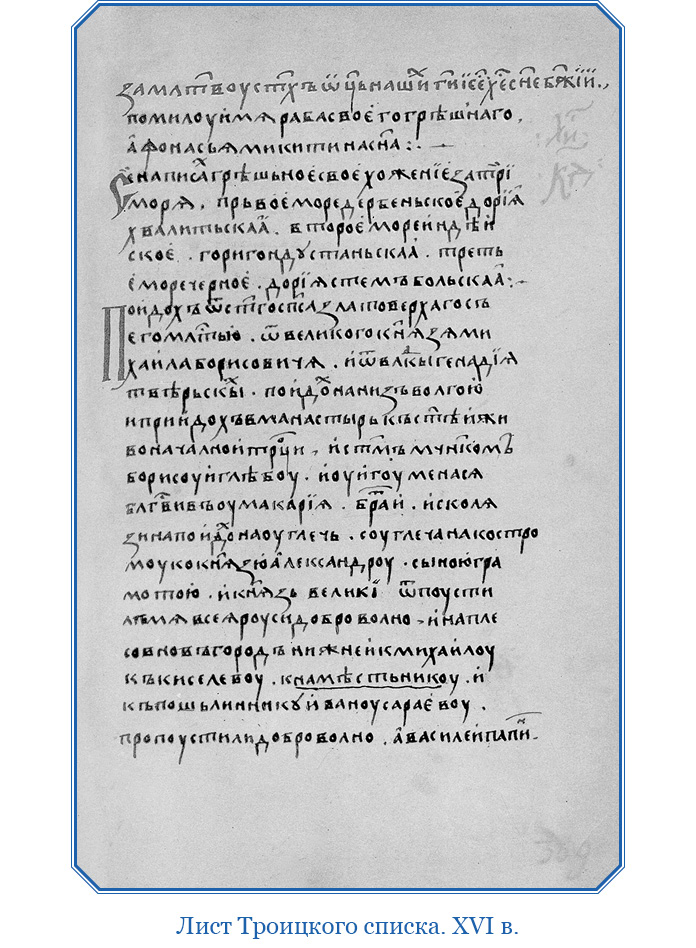 за млтвоу стхъ ѿць наши ги їсе хе сне бжїй.,
помилоуй мя раба своего грѣшнаго,
аѳонасья микитина сна :.
Се написа грѣшьное свое хоженїе за трї
моря, прьвое море дербеньское дорїя
хвалитьскаа. второе море индѣй
ское. горигондустаньскаа. треть
е море черное. дорїя стемъбольскаа :.
Пойдохъ ѿ стго спса златоверхаго съ
его млтью. ѿ великого кнзя ми
хаила борисовичя. и ѿ влкы генадїя
твѣрьскы. пойдо на низъ волгою
и прийдохъ в манастырь къ стѣй жи
воначалной трци, и стмъ мчнкомъ
борисоу и глѣбоу. и оу игоумена ся
блгвивъ оу макарїя. братїи. и с коля
зина пойдо на оуглечь. с оуглеча на костро
моу ко кнзю александроу. с ыною гра
мотою. и кнзь великї ѿпоусти
мя всея роуси доброволно, и на пле
со в новъгородъ нижней к михаилоу
къ киселевоу. к намѣстьникоу. и
къ пошьлиннику ивану сараевоу.
пропоустили доброволно. а василей папин.
Лист Троицкого списка. XVI в.